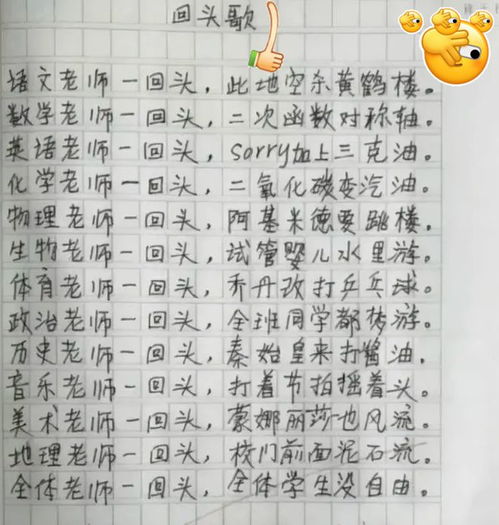 回头歌
语文老师一回头，此地空余黄鹤楼。
数学老师一回头，二次函数对称轴。
英语老师一回头，sorry加上三克油。
化学老师一回头，二氧化碳变汽油。
物理老师一回头，阿基米德要跳楼。
生物老师一回头，试管婴儿水里游。
体育老师一回头，乔丹改打乒乓球。
政治老师一回头，全班同学都梦游。
历史老师一回头，秦始皇来打酱油。
音乐老师一回头，打着节拍摇着头。
美术老师一回头，蒙娜丽莎也风流。
地理老师一回头，校门前面泥石流。
全体老师一回头，全体学生没自由。